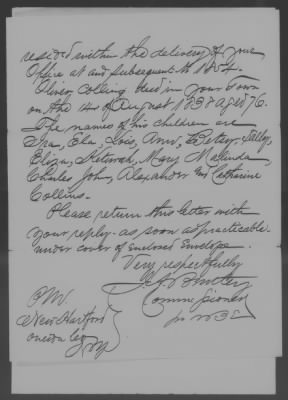 resided within the delivery of your
Office at and subsequent to 1854.
Oliver Collins died in your Town
on the 14 of August 1838 aged 76.
The names of his children are
Ira, Ela, Lois, Ann, Betsy, Salley,
Eliza, Keturah, Mary Malinda,
Charles John, Alexander and Catharine
Collins.
Please return this letter with
your reply as soon as practicable
under cover of enclosed Envelope.
Very respectfully
Commissioner
P.M.
New Hartford
Oneida Co
NY